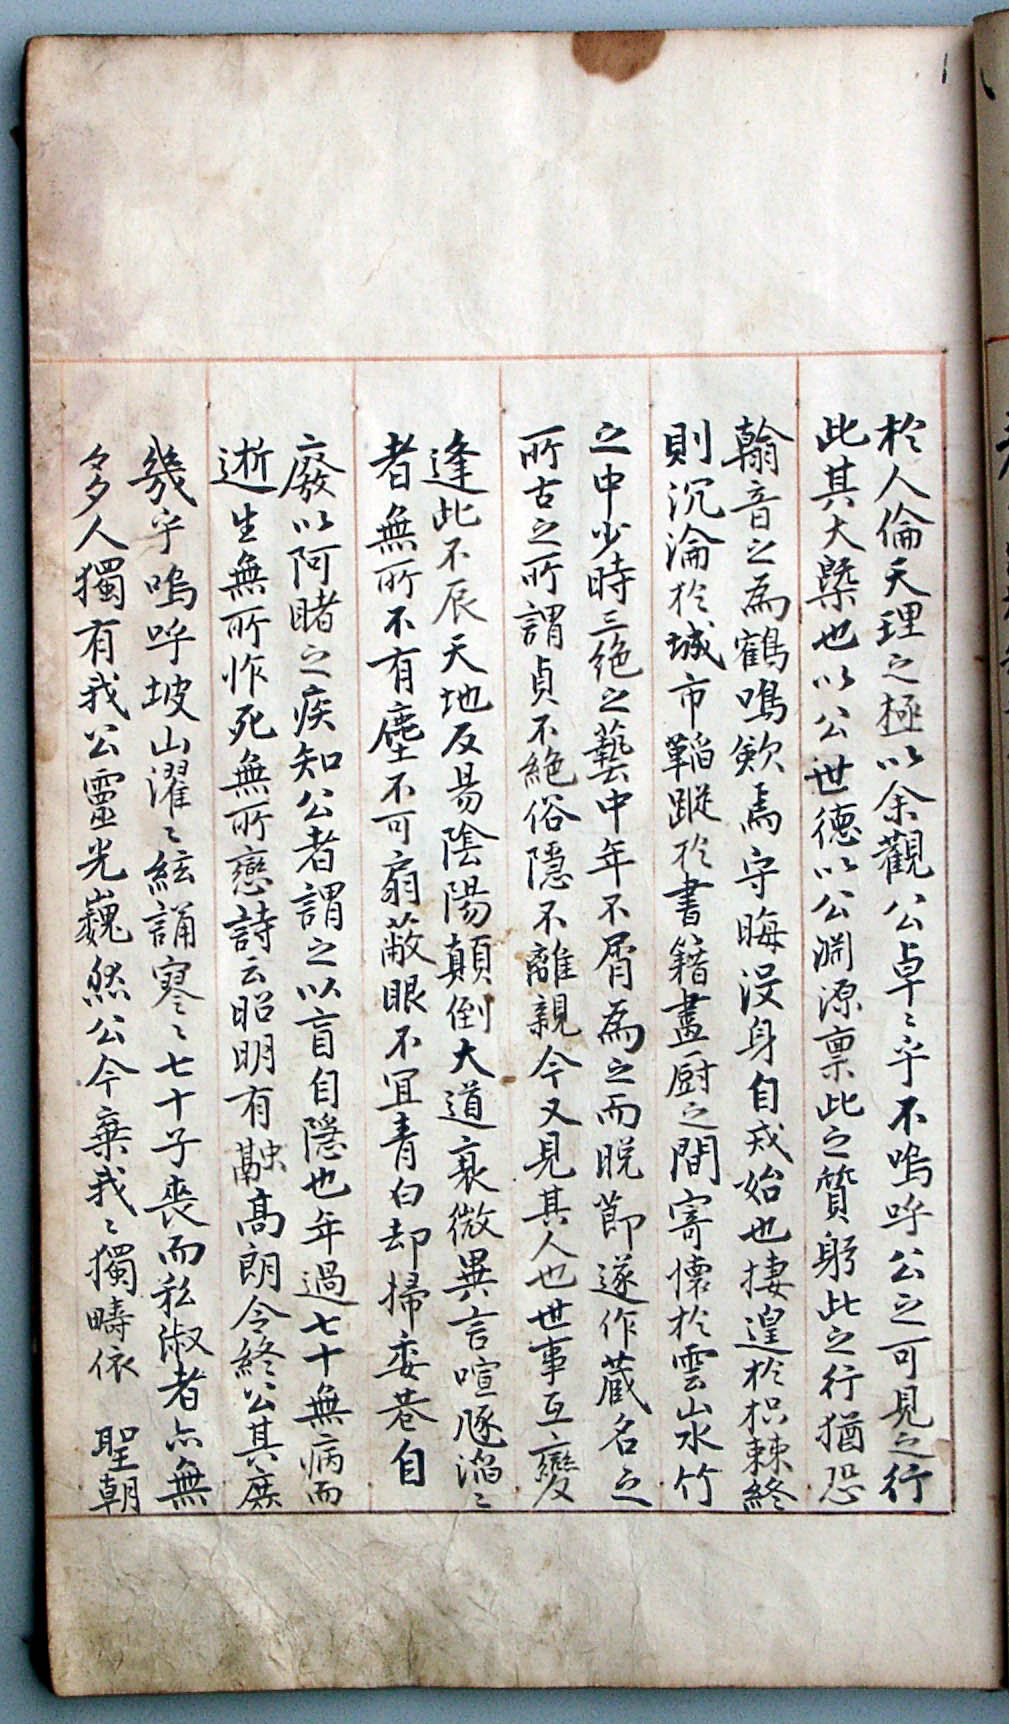 於人倫天理之極以余觀公卓〻乎不嗚呼公之可見之行
此其大槩也以公世德以公淵源稟此之質躬此之行猶恐
翰音之為鶴鳴欿焉守晦沒身自戎始也捿遑於枳棘終
則沉淪於城市韜蹤於書籍畵厨之間寄懷於雲山水竹
之中少時三絶之藝中年不屑為之而脱節遂作蔵名之
所古之所謂貞不絶俗隱不離親今又見其人也世事互變
逢此不辰天地反昜陰陽顛倒大道衰微異言喧豗滔〻
者無所不有塵不可扇蔽眼不冝青白却掃委巷自
廢以阿睹之疾知公者謂之以盲自隱也年過七十無病而
逝生無所怍死無所戀詩云昭明有融髙朗令終公其庶
幾乎嗚呼坡山濯〻絃誦寥〻七十子喪而私淑者亦無
多人獨有我公靈光巍然公今棄我〻獨疇依 聖朝